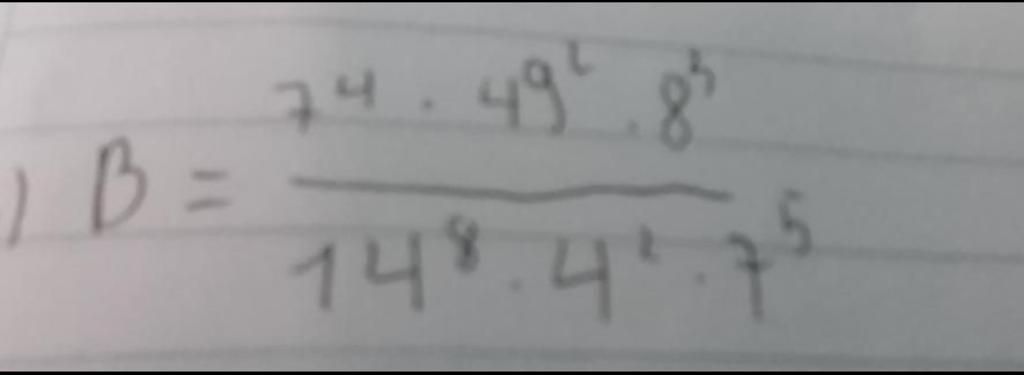 ) B = 
7⁴ · 49² · 8³
14⁸ · 4² · 7⁵